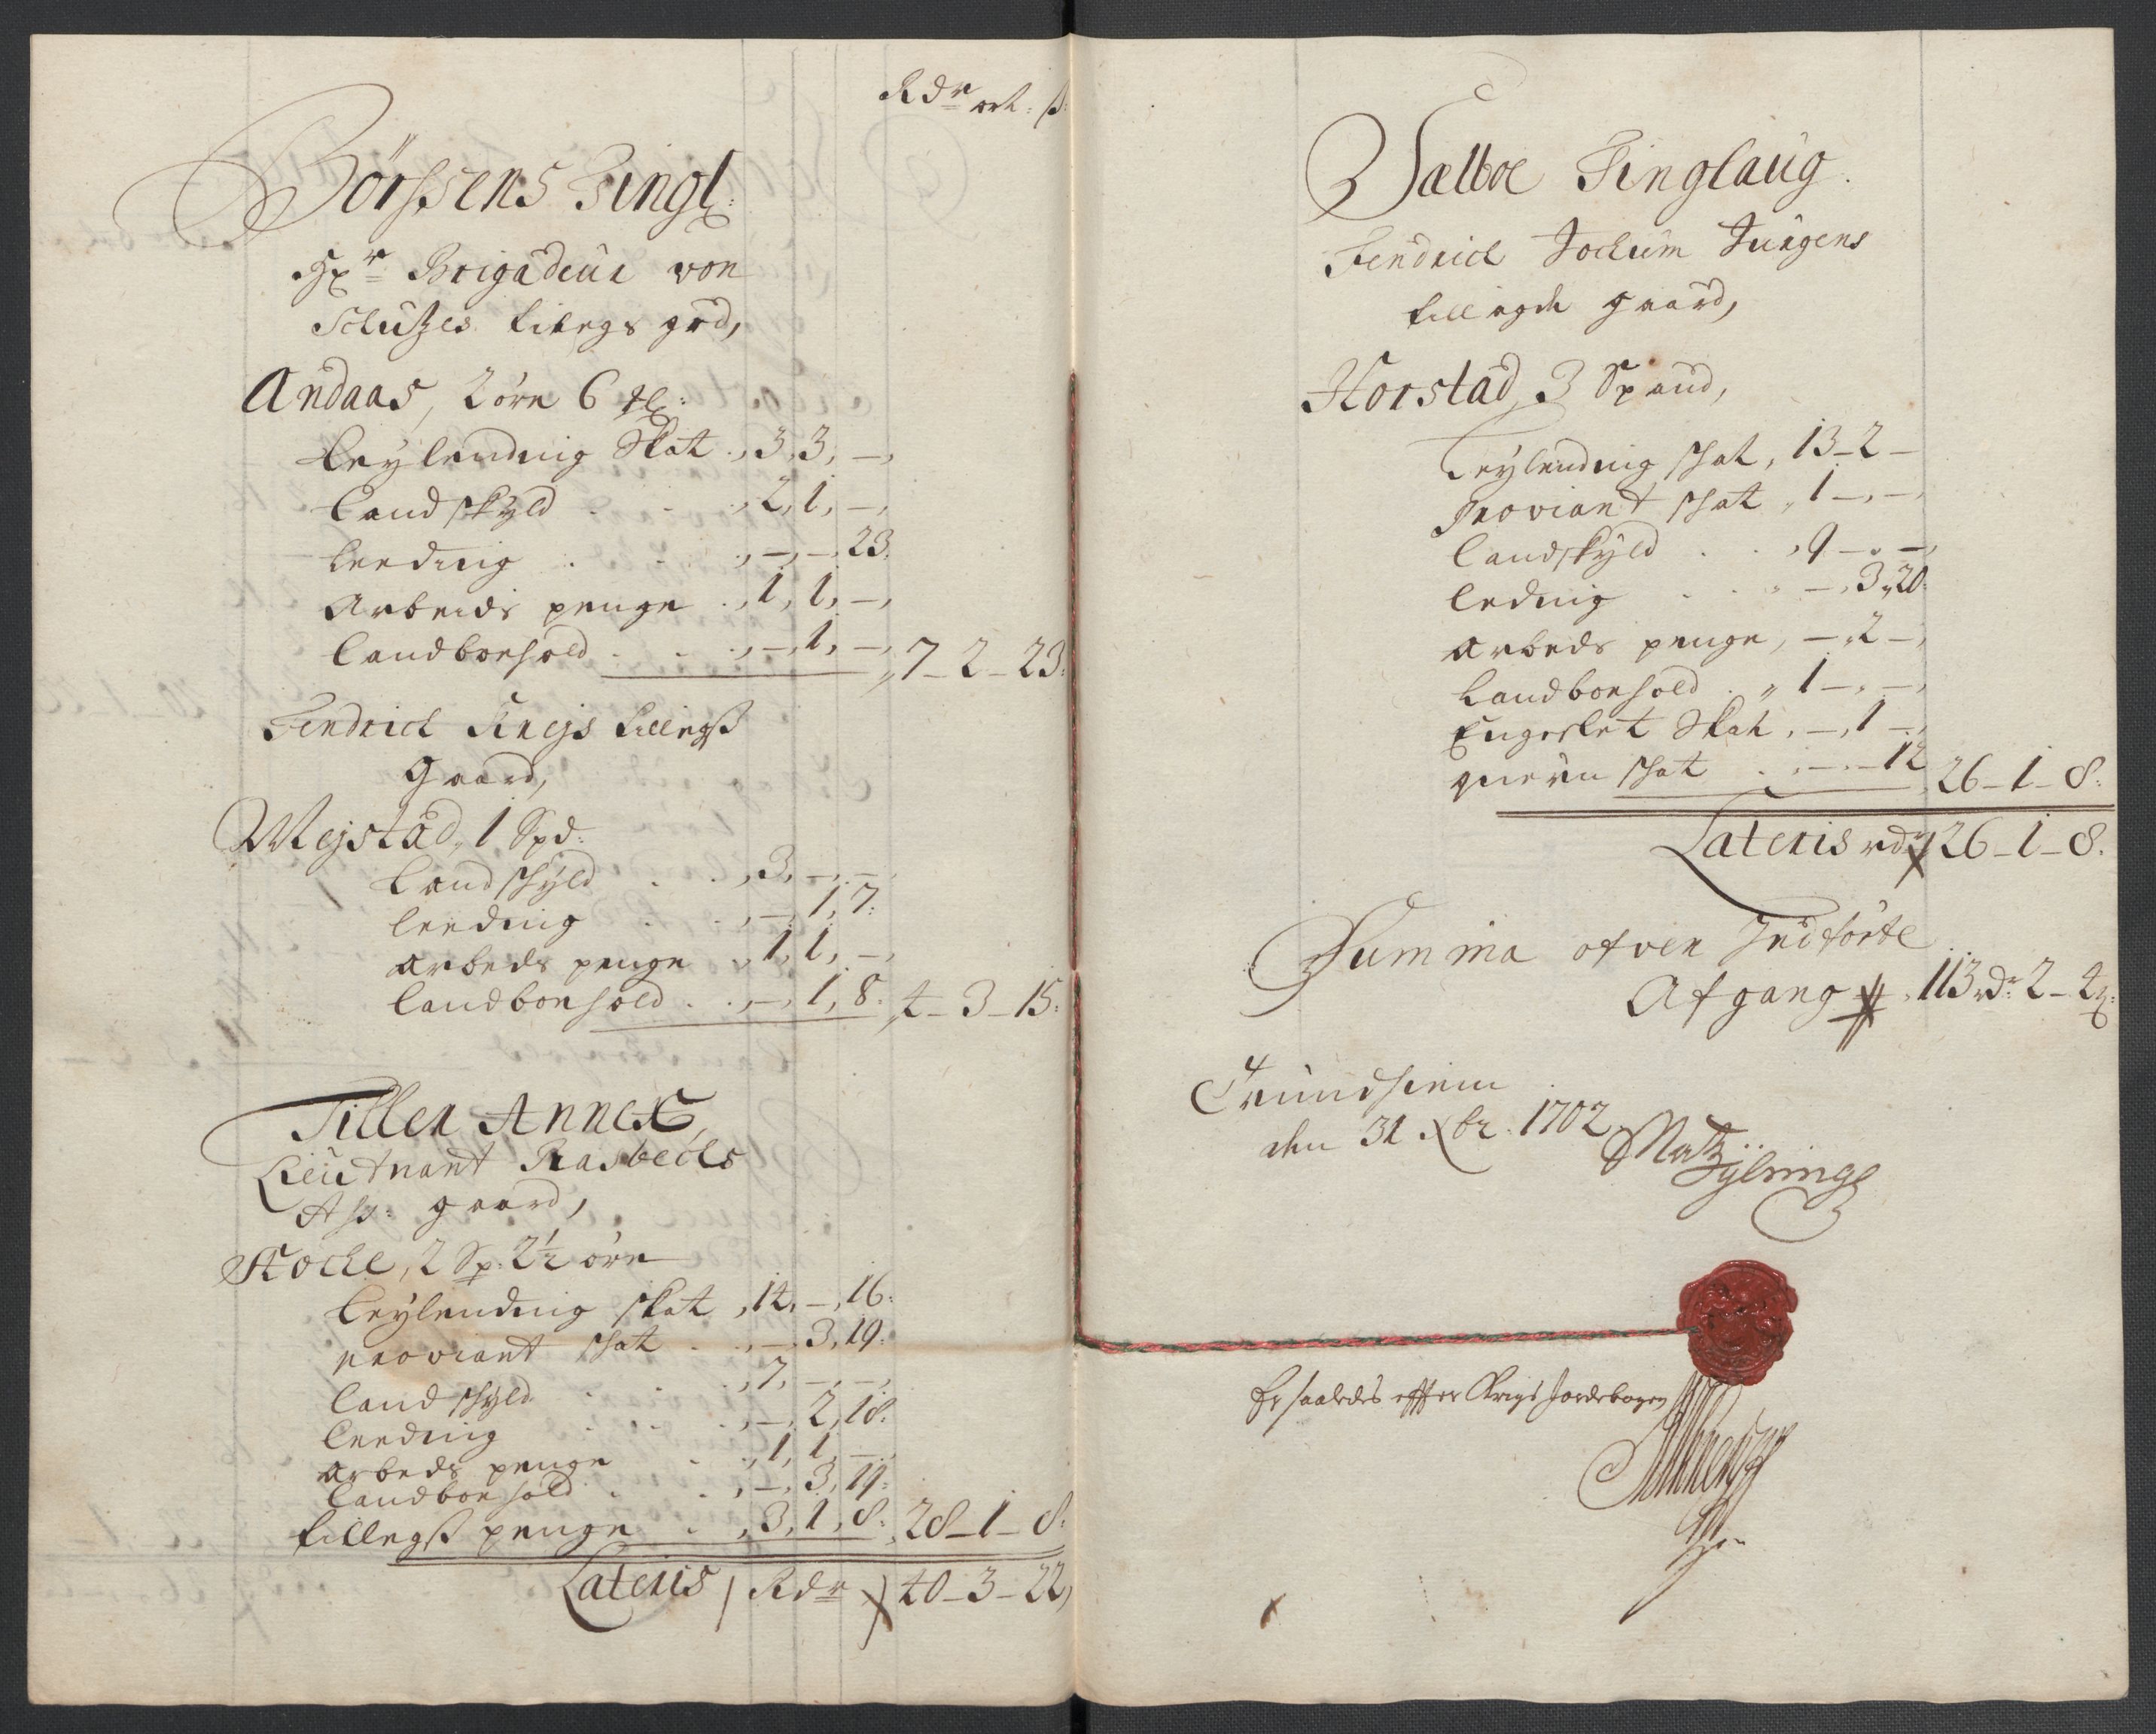 Rdr ort. ß:
Börssens Tingl:
Hr Brigadeur von
Schutzes tilegs grd,
Andaas, 2 øre 6 mkl:
Leylending Skat . , 3, 3, —,
Landskyld . . . , 2, 1, —,
Leeding . . . , —, —, 23.
Arbeids penge . , 1, 1, —,
Landboehold . . . , —, 1, —, 7 – 2 – 23:
Fendrich Knejs tillegß
Gaard,
Mejstad, 1 Spd:
Landskyld . . , 3, —, —,
Leeding . . , —, 1, 7:
Arbeds penge , 1, 1, —,
Landboehold . . , —, 1, 8. 4 – 3 – 15:
Tiller Annex,
Lieutnant Rasbechs
Asp: gaard,
Stoche, 2 Sp: 2½ øre
Leylending skat , 14, —, 16:
proviant skat . , —, 3, 19:
Landskyld . . . , 7, —, —,
Leeding . . . , —, 2, 18:
Arbeds penge . , 1, 1, —,
Landboehold . . , —, 3, 19:
tillegß penge . , 3, 1, 8: 28 – 1 – 8:
Lateris / Rdr 40 – 3 – 22,
Sælboe Tinglaug.
Fendrich Jochum Jurgens
tillagde gaard,
Horstad 3 Spand,
Leylending skat, 13 – 2 –
Proviant skat „ 1 – „ –,
Landskyld . . , 9 – „ –,
Leding . . „ –, 3 „ 20:
Arbeds penge, – „ 2 –,
Landboehold . „ 1 – „ –,
Engeslet Skat, –, 1 –,
quern skat . , – „ – 12 26 – 1 – 8:
Lateris rdr 26 – 1 – 8.
Summa ofven Indförte
Afgang 113 rdr: 2 – 2ß:
Trundhiem
den 31 Xbr. 1702
Er saaledes effter Krigs Jordebogen